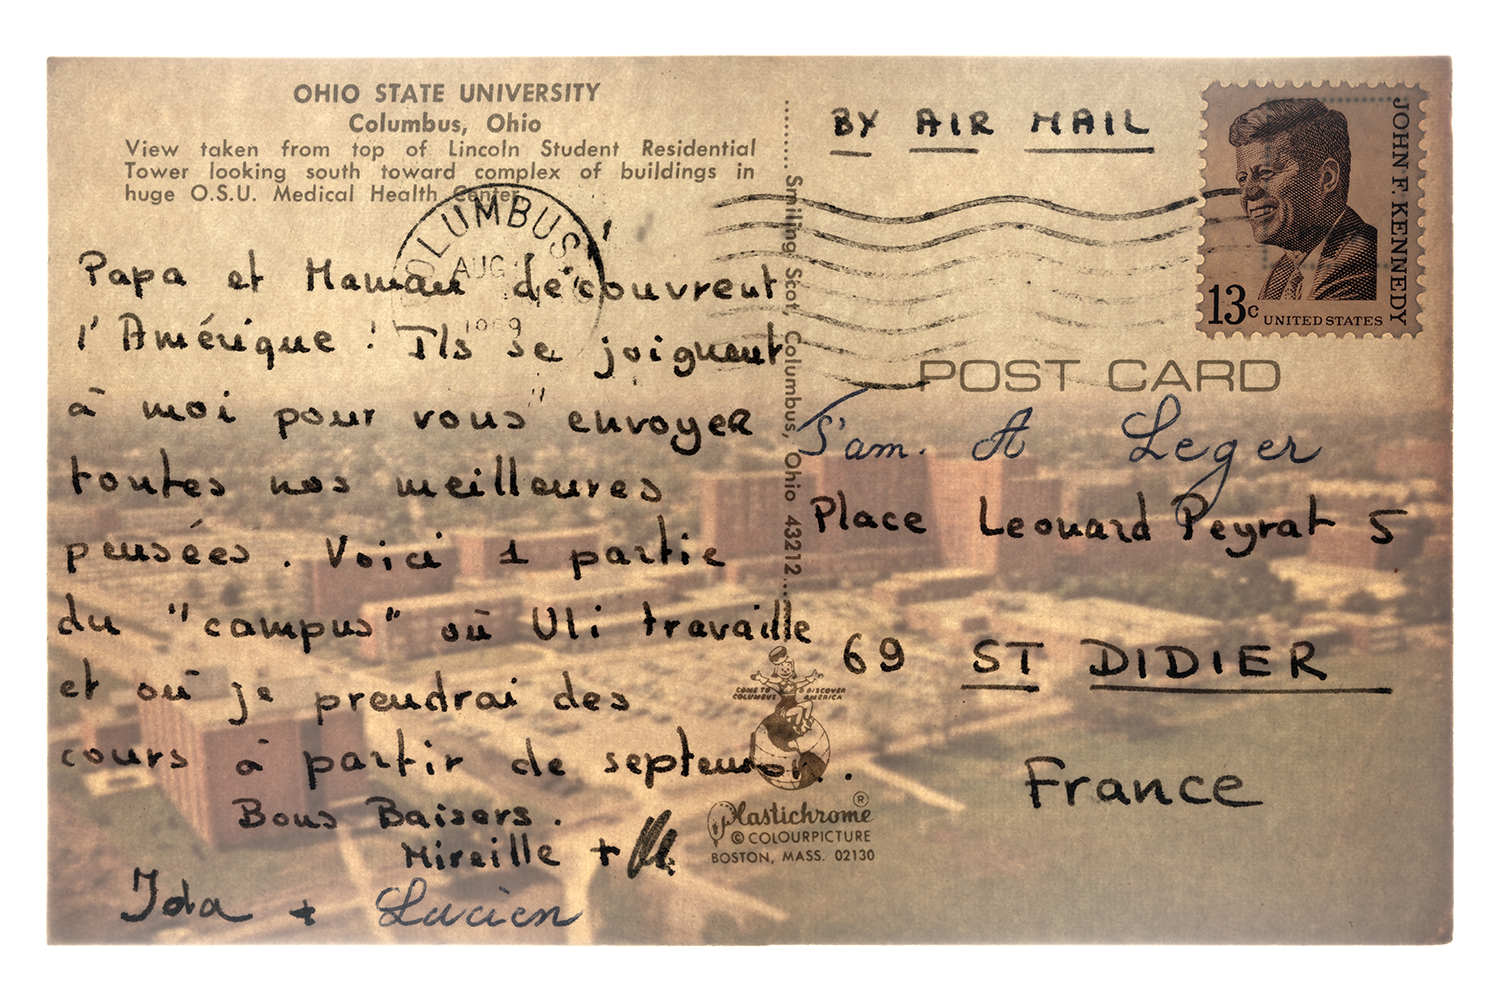 OHIO STATE UNIVERSITY
Columbus, Ohio
View taken from top of Lincoln Student Residential
Tower looking south toward complex of buildings in
huge O.S.U. Medical Health Center
COLUMBUS
AUG
1969
Papa et Maman découvrent
l'Amérique ! Ils se joignent
à moi pour vous envoyer
toutes nos meilleures
pensées. Voici 1 partie
du "campus" où Uli travaille
et où je prendrai des
cours à partir de septembre.
Bons Baisers.
Mireille +
Ida + Lucien
Smiling Scot, Columbus, Ohio 43212
COME TO COLUMBUS & DISCOVER AMERICA
Plastichrome ®
© COLOURPICTURE
BOSTON, MASS. 02130
BY AIR MAIL
JOHN F. KENNEDY
13c UNITED STATES
POST CARD
A Leger
Place Leonard Peyrat 5
69 ST DIDIER
France